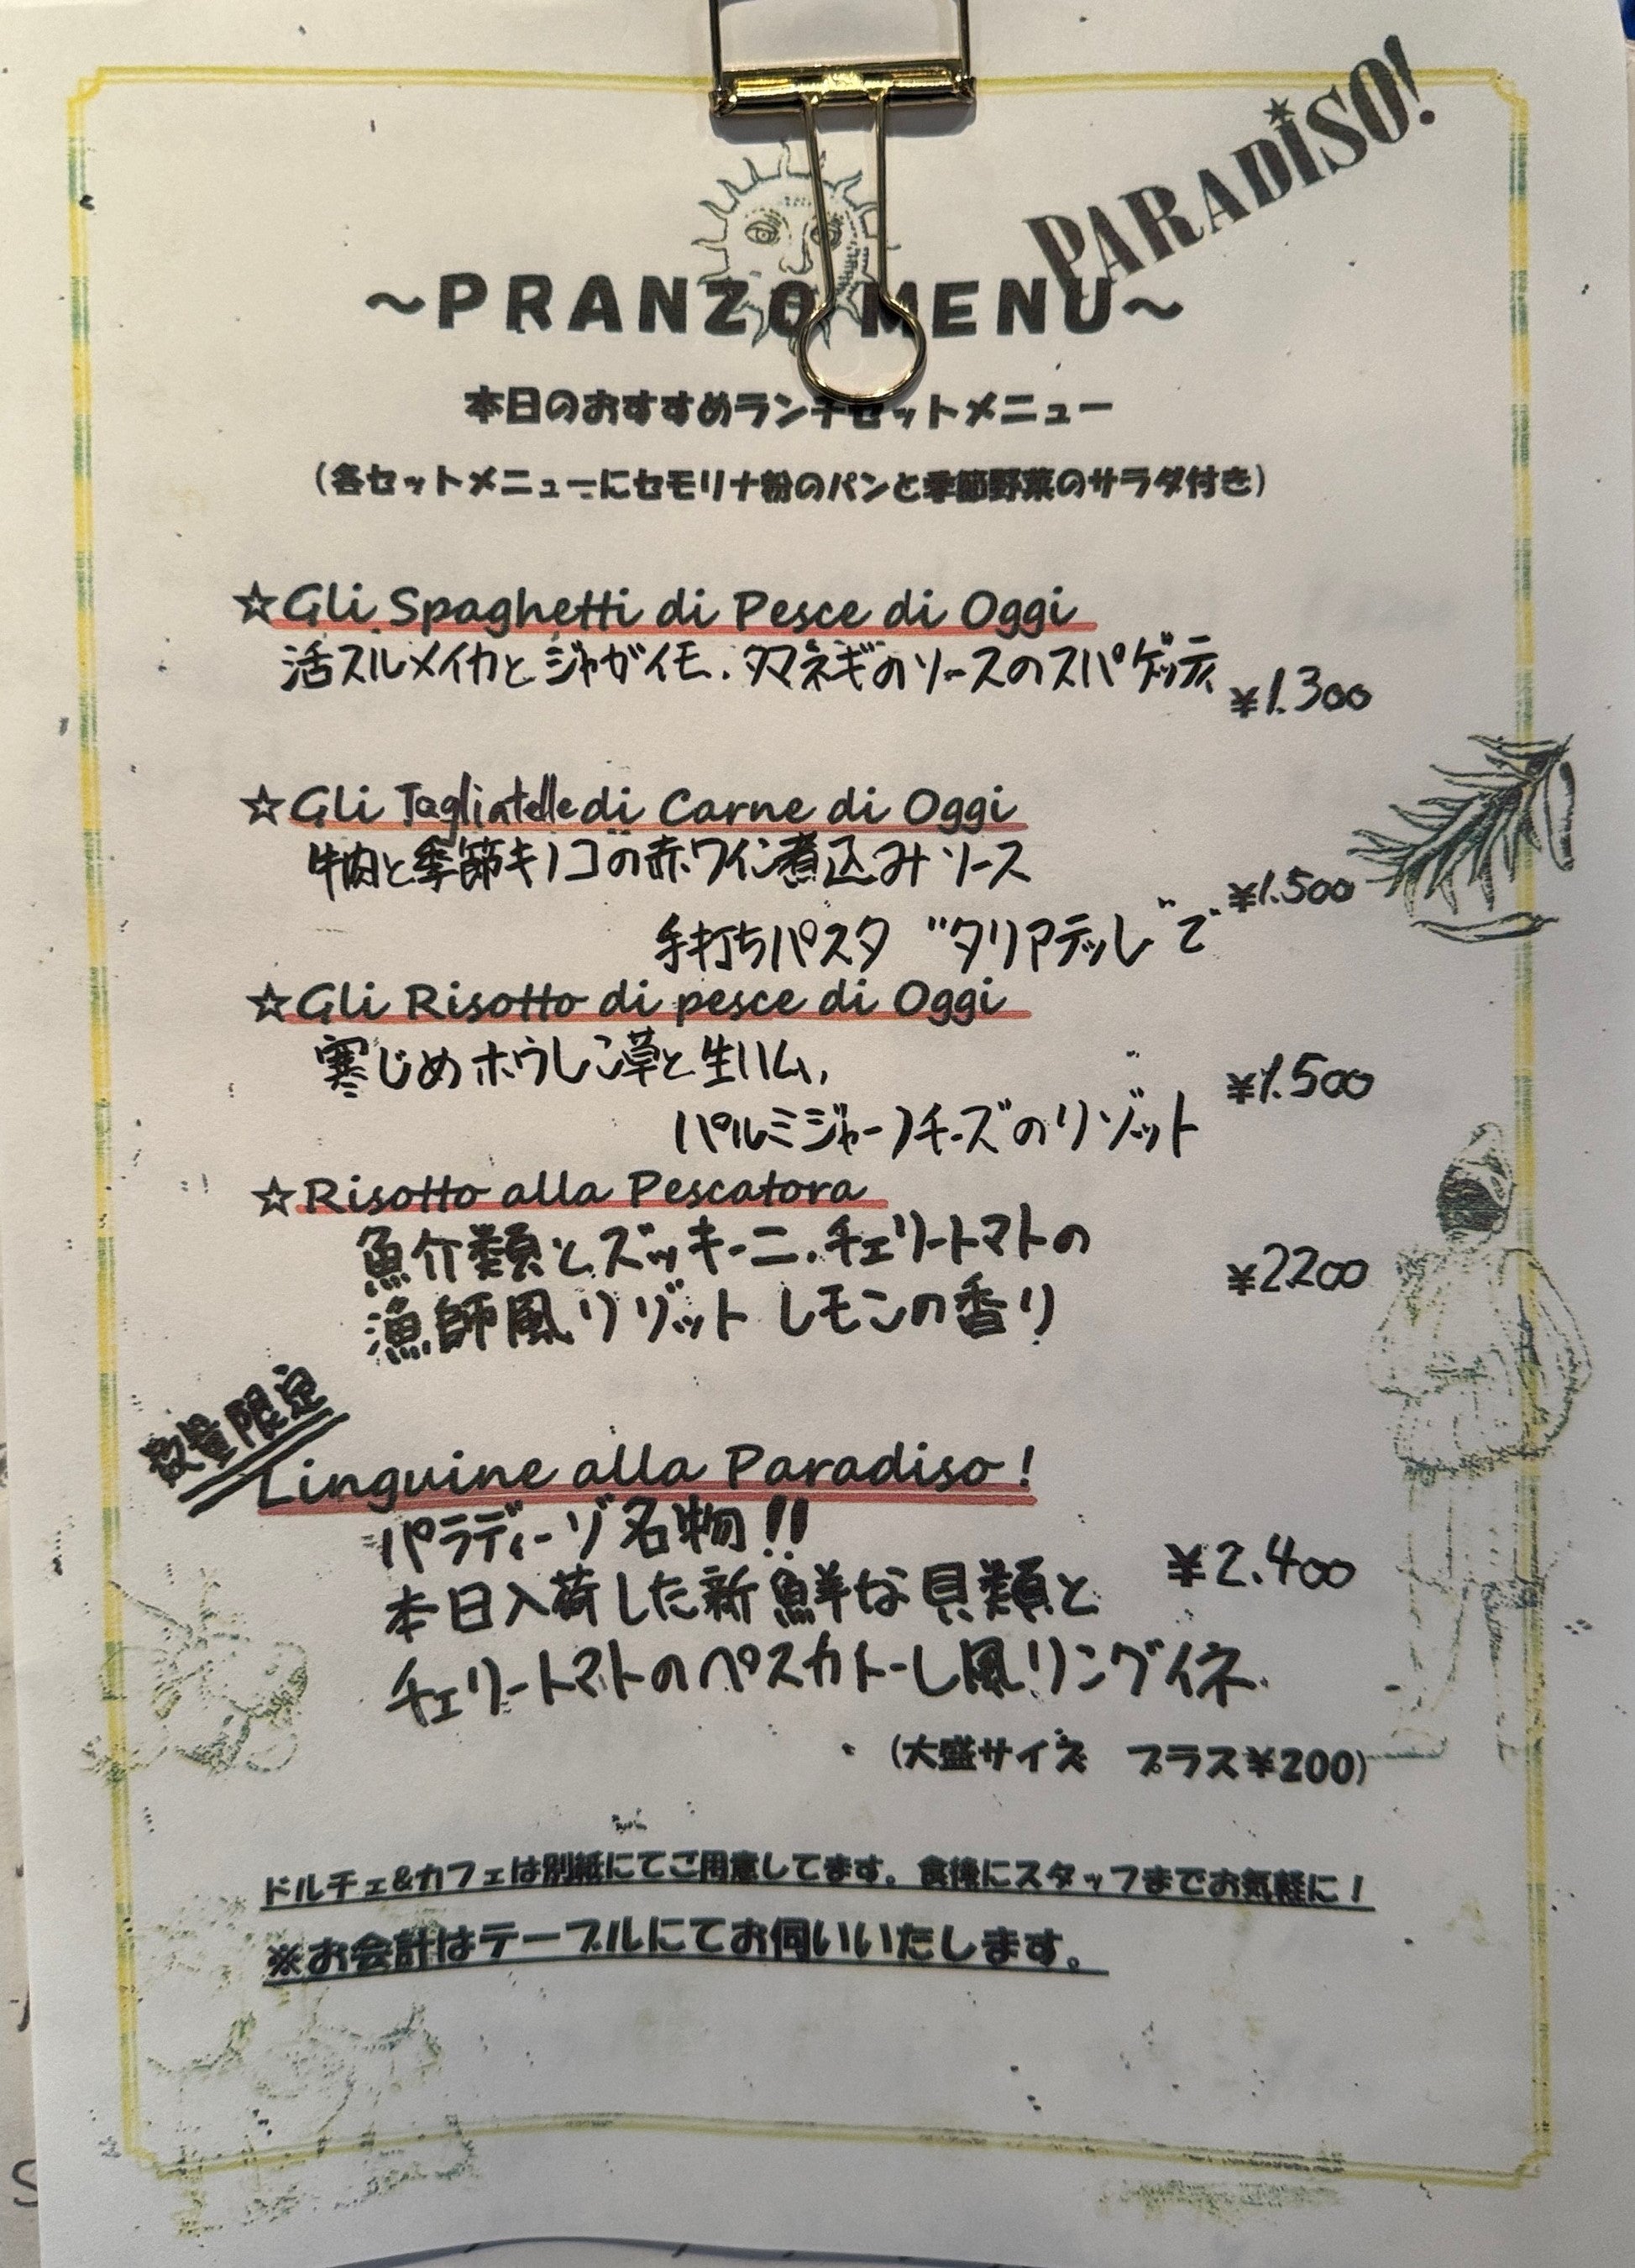 PARADISO!
~PRANZO MENU~
本日のおすすめランチセットメニュー
(各セットメニューにセモリナ粉のパンと季節野菜のサラダ付き)
☆Gli Spaghetti di Pesce di Oggi
活スルメイカとジャガイモ、タマネギのソースのスパゲッティ
¥1.300
☆Gli Tagliatelle di Carne di Oggi
牛肉と季節キノコの赤ワイン煮込みソース
¥1.500
手打ちパスタ "タリアテッレ"で
☆Gli Risotto di pesce di Oggi
寒じめホウレン草と生ハム、
¥1.500
パルミジャーノチーズのリゾット
☆Risotto alla Pescatora
魚介類とズッキーニ、チェリートマトの
¥2200
漁師風リゾット レモンの香り
数量限定
Linguine alla Paradiso!
パラディーゾ名物!!
¥2.400
本日入荷した新鮮な貝類と
チェリートマトのペスカトーレ風リングイネ
(大盛サイズ プラス¥200)
ドルチェ&カフェは別紙にてご用意してます。食後にスタッフまでお気軽に!
※お会計はテーブルにてお伺いいたします。